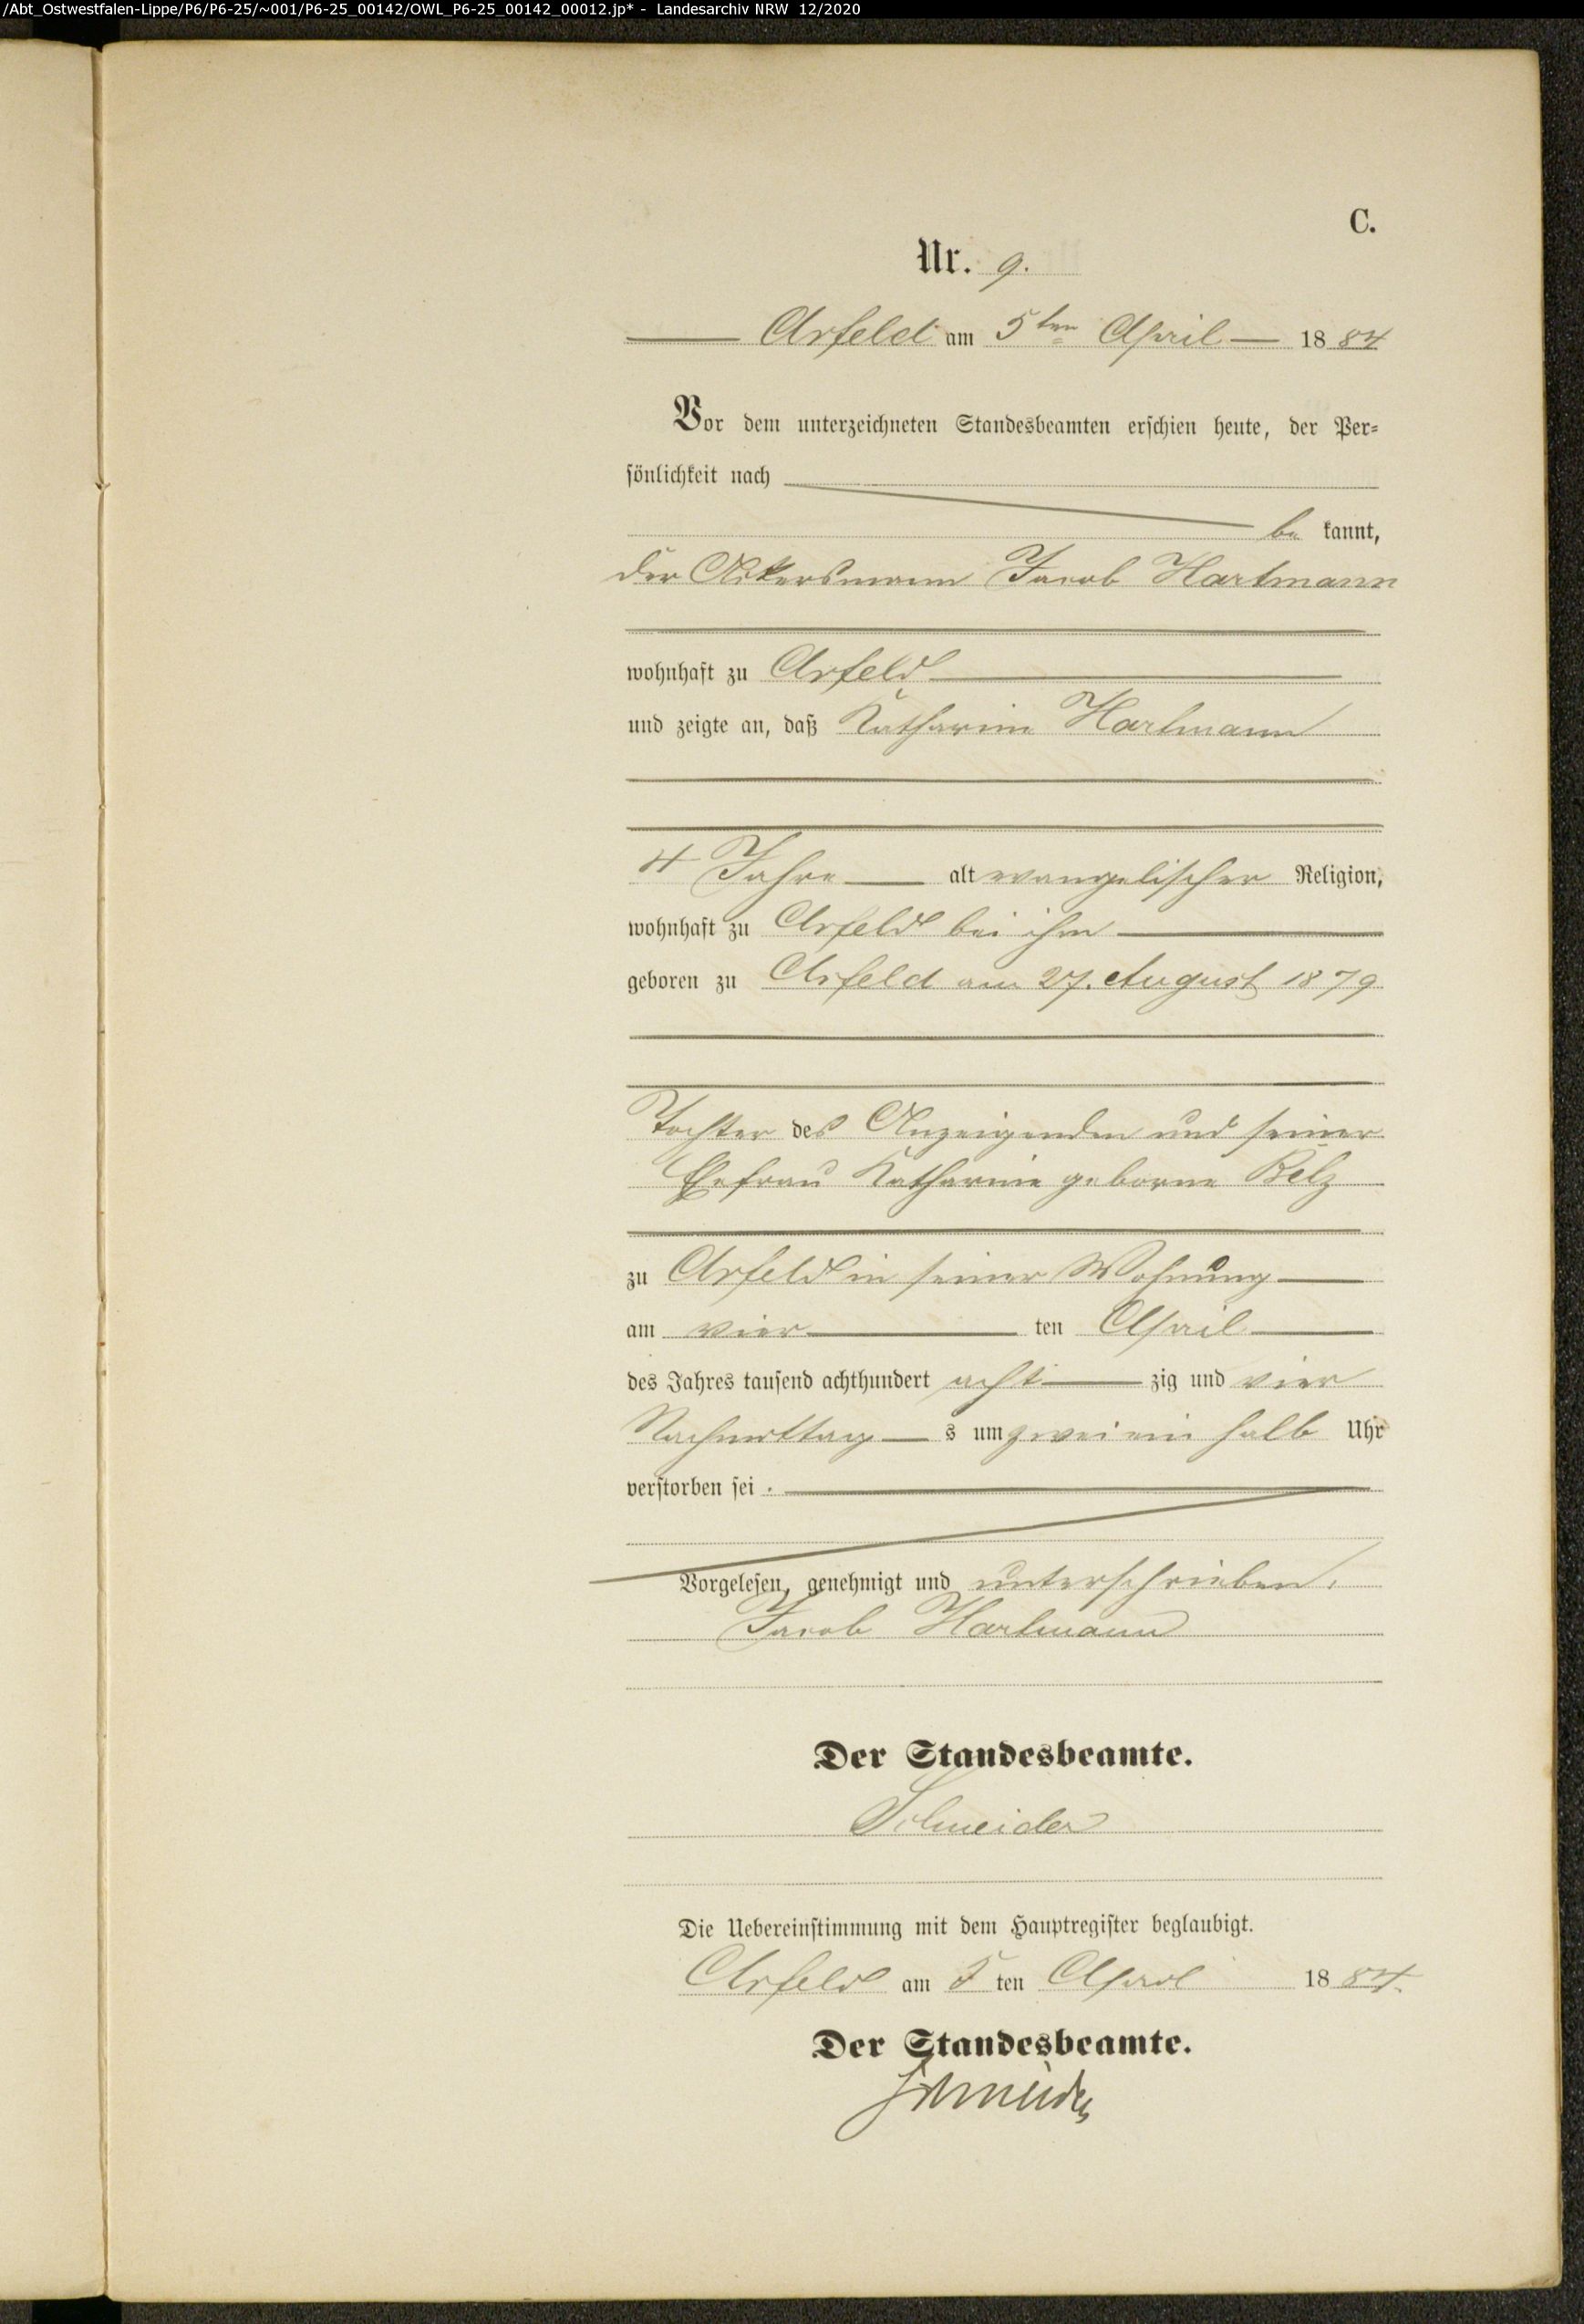 /Abt_Ostwestfalen-Lippe/P6/P6-25/~001/P6-25_00142/OWL_P6-25_00142_00012.jp* - Landesarchiv NRW 12/2020
C.
Nr. 9.
Arfeld am 5ten April 1884
Vor dem unterzeichneten Standesbeamten erschien heute, der Per=
sönlichkeit nach
be kannt,
der Ackersmann Jacob Hartmann
wohnhaft zu Arfeld
und zeigte an, daß Katharine Hartmann
4 Jahre alt evangelischer Religion,
wohnhaft zu Arfeld bei ihm
geboren zu Arfeld am 27. August 1879
Tochter des Anzeigenden und seiner
Ehefrau Katharine geborne Belz
zu Arfeld in seiner Wohnung
am vier ten April
des Jahres tausend achthundert acht zig und vier
Nachmittag s um zwei ein halb Uhr
verstorben sei.
Vorgelesen, genehmigt und unterschrieben.
Jacob Hartmann
Der Standesbeamte.
Schneider
Die Uebereinstimmung mit dem Hauptregister beglaubigt.
Arfeld am 5 ten April 1884.
Der Standesbeamte.
Schneider